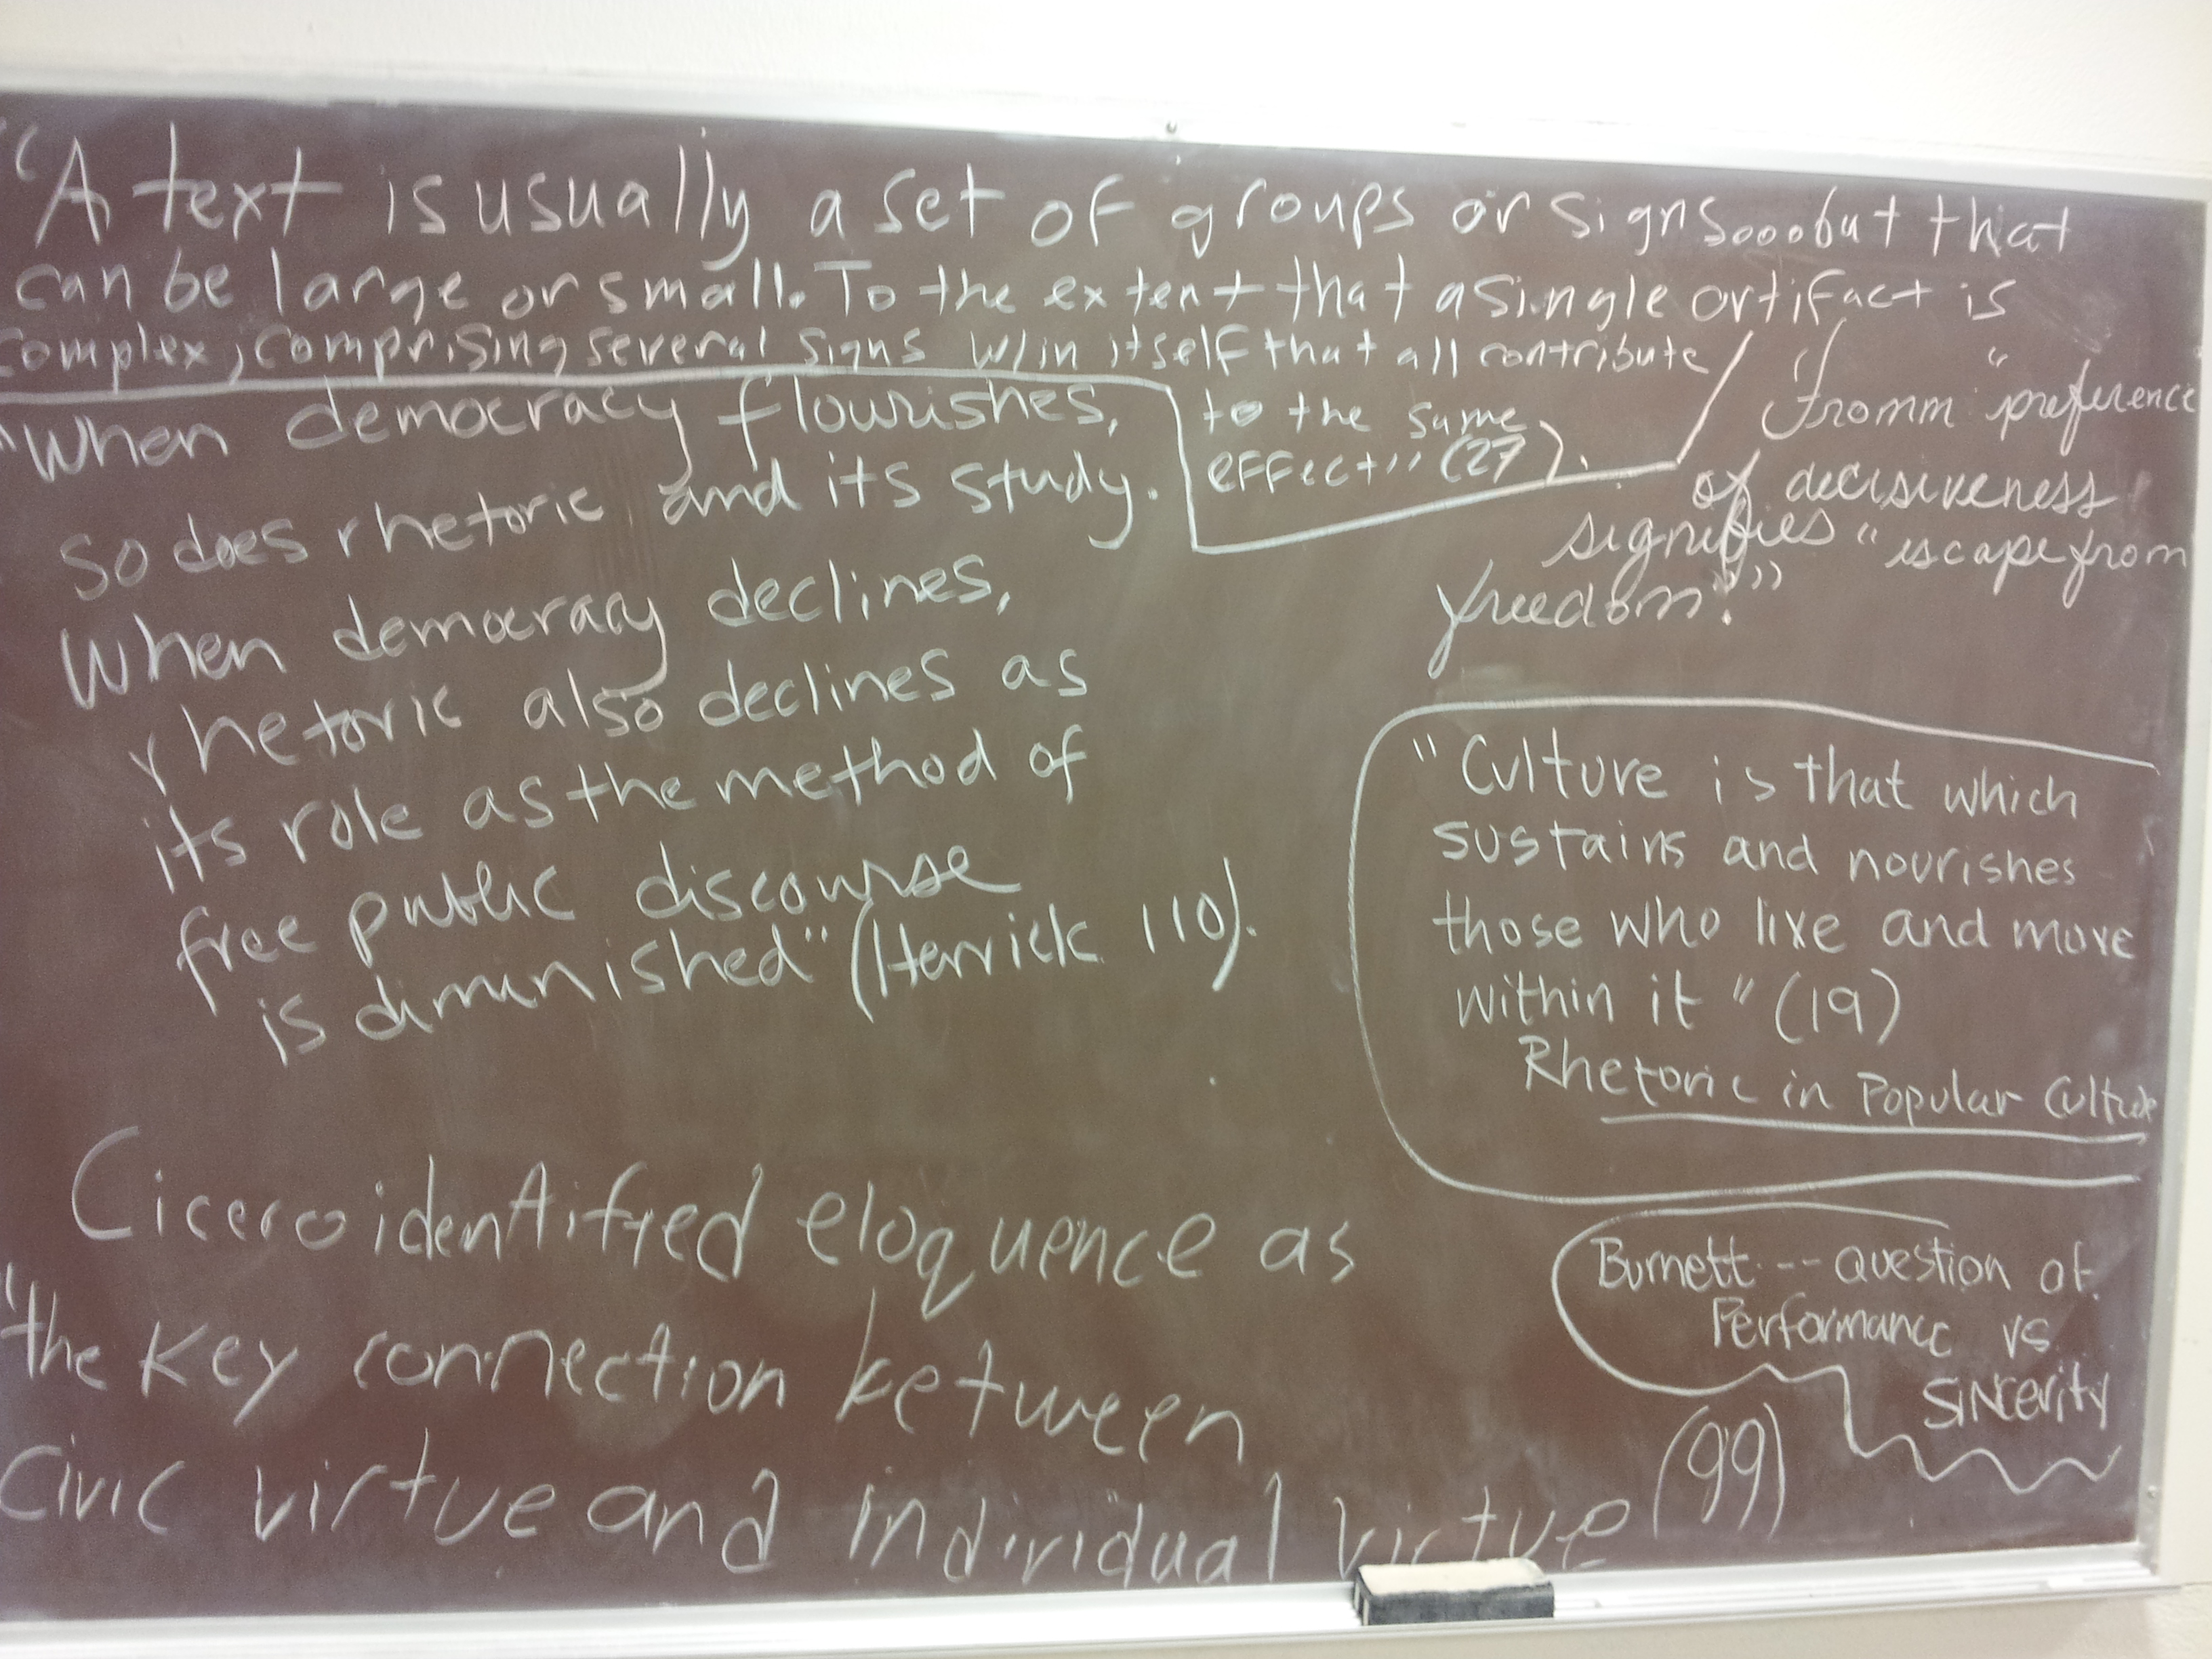 "A text is usually a set of groups or signs....but that
can be large or small. To the extent that a single artifact is
complex, comprising several signs w/in itself that all contribute
to the same
effect" (27).
"When democracy flourishes,
so does rhetoric and its study.
When democracy declines,
rhetoric also declines as
its role as the method of
free public discourse
is diminished" (Herrick 110).
"Fromm "preference
of decisiveness
signifies "escape from
freedom."
"Culture is that which
sustains and nourishes
those who live and move
within it" (19)
Rhetoric in Popular Culture
Cicero identified eloquence as
"the key connection between
civic virtue and individual virtue (99)
Burnett --- question of
Performance vs
sincerity